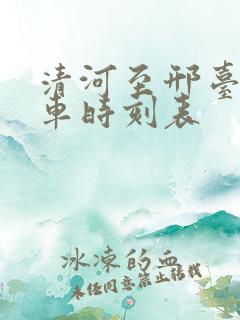 清河至邢臺
車時刻表
冰凍的血
未经同意禁止转载